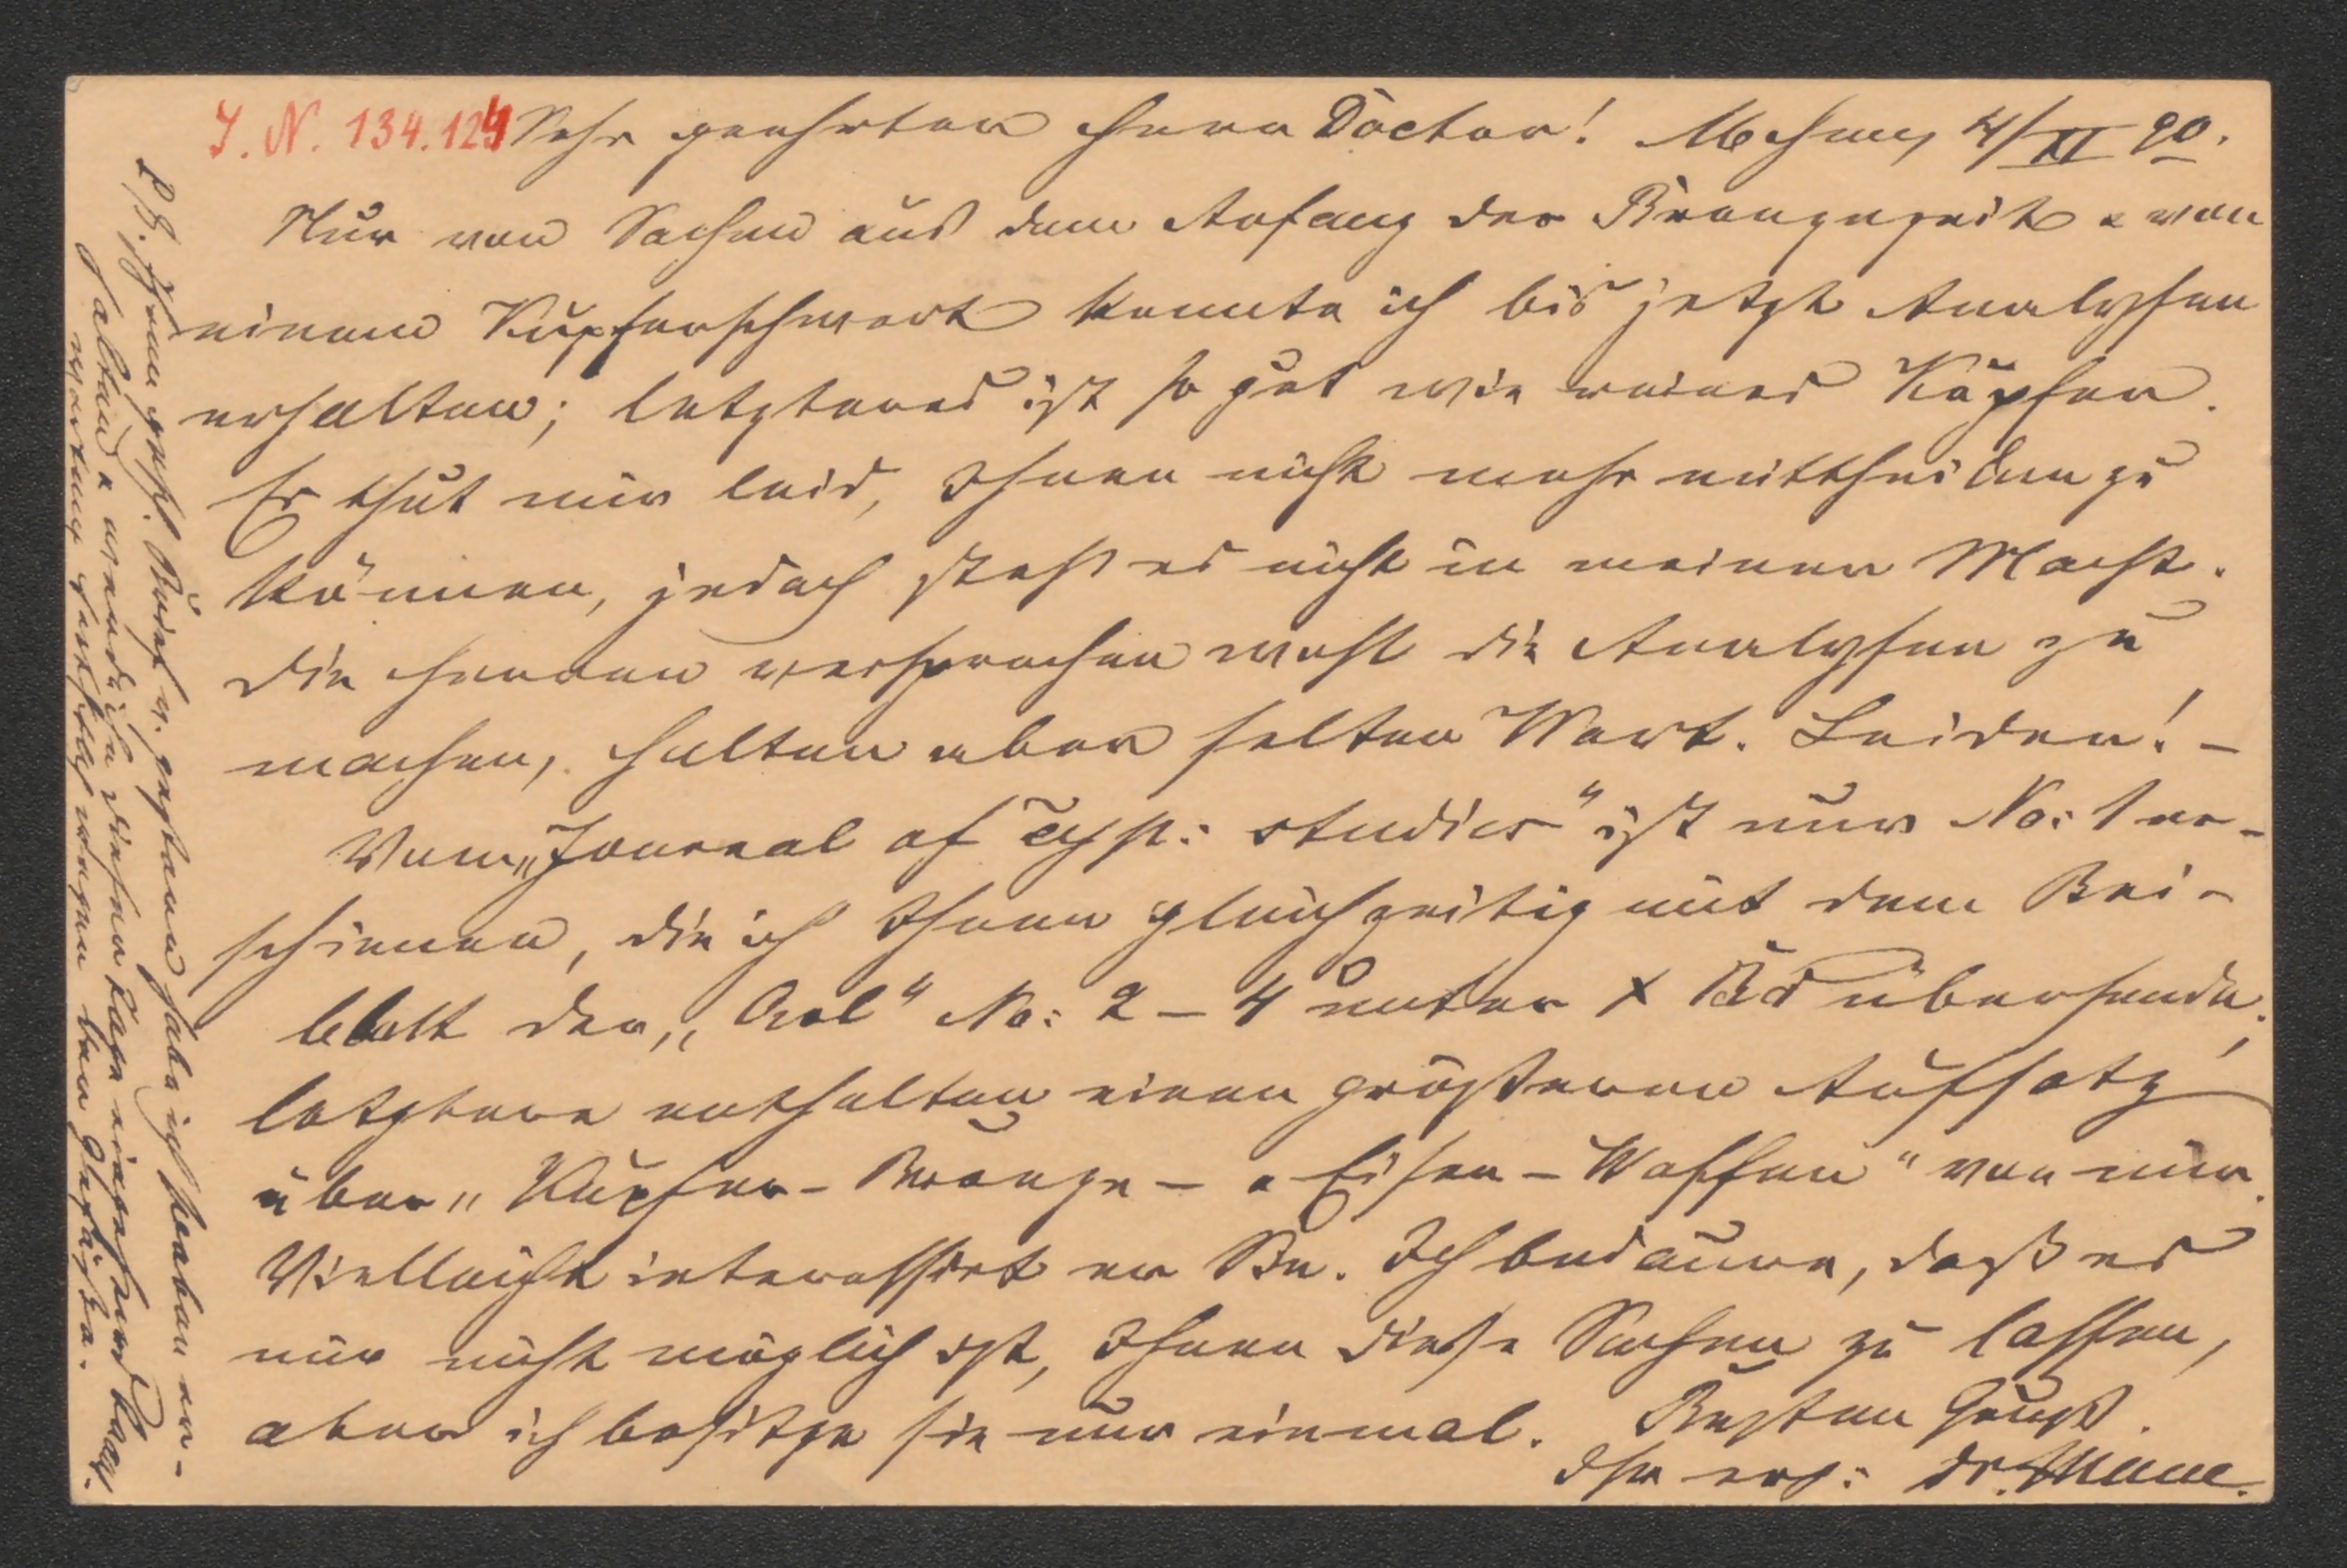 J. N. 134.124
Sehr geehrter Herr Doctor! München, 4/XI 90.
Nur von Sachen aus dem Anfang der Bronzezeit & von
einem Kupferschwert konnte ich bis jetzt Analysen
erhalten; letzteres ist so gut wie reines Kupfer.
Es thut mir leid, Ihnen nicht mehr mittheilen zu
können, jedoch steht es nicht in meiner Macht.
Die Herren versprechen wohl die Analysen zu
machen, halten aber selten Wort. Leider! –
Vom „Journal of Cypr: studies“ ist nur No: 1 er-
schienen, die ich Ihnen gleichzeitig mit dem Bei-
blatt der „Owl“ No: 2 – 4 unter X Bd übersende;
letztere enthalten einen größeren Aufsatz
über „Kupfer- Bronze- & Eisen-Waffen“ von mir.
Vielleicht interessirt er Sie. Ich bedaure, daß es
mir nicht möglich ist, Ihnen diese Sachen zu lassen,
aber ich besitze sie nur einmal. Besten Gruß.
Ihr erg: Dr.
PS. Ihren gesch. Brief v. gestern habe ich soeben er-
halten & werde ich diese Tage eingehend